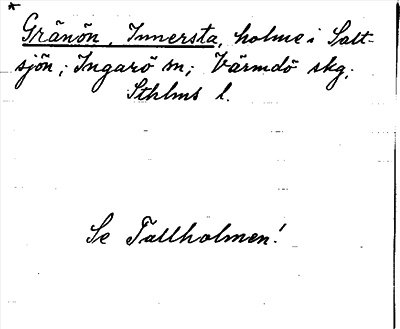 * Gränön, Innersta, holme i Salt-
sjön; Ingarö sn; Värmdö skg;
Sthlms l.
Se Tallholmen!